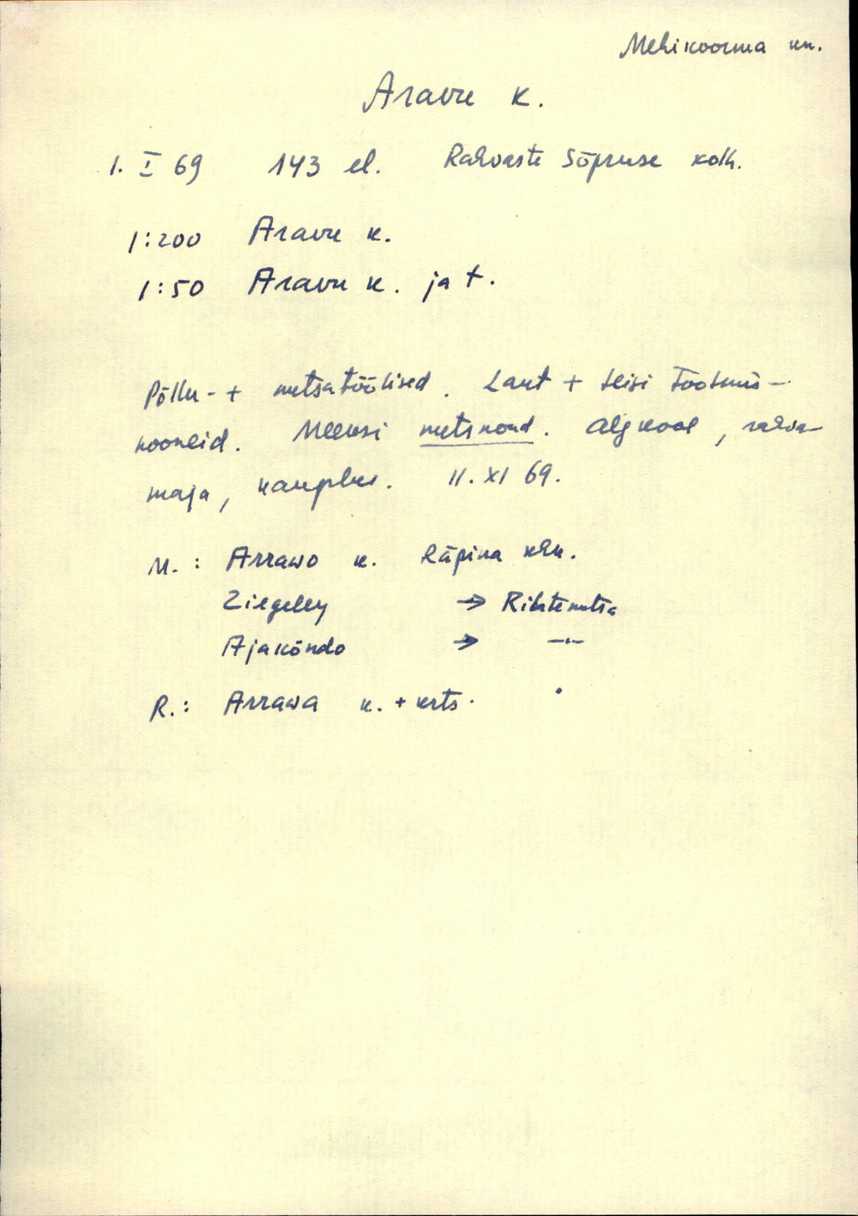 Mehikoorma kn.
Aravu k.
1. I 69 143 el. Rahvaste Sõpruse kolh.
1:200 Aravu k.
1:50 Aravu k. ja t.
Põllu- + metsatöölised. Laut + teisi tootmis-
hooneid. Meeksi metskond. Algkool, rahva-
maja, kauplus. 11. XI 69.
M.: Arrawo k. Räpina khk.
Ziegeley → Ristemetsa
Ajakõndo → —"—
R.: Arrawa k. + krts.